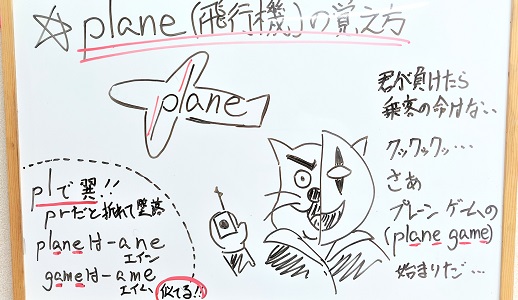 ☆plane(飛行機)の覚え方
plane
君が負けたら
乗客の命はない…
クックックッ…
さあ
プレーンゲームの
(plane game)
始まりだ…
plで翼!!
prだと折れて墜落
planeは-ane
エイン
gameは-ame
エイム
似てる!!